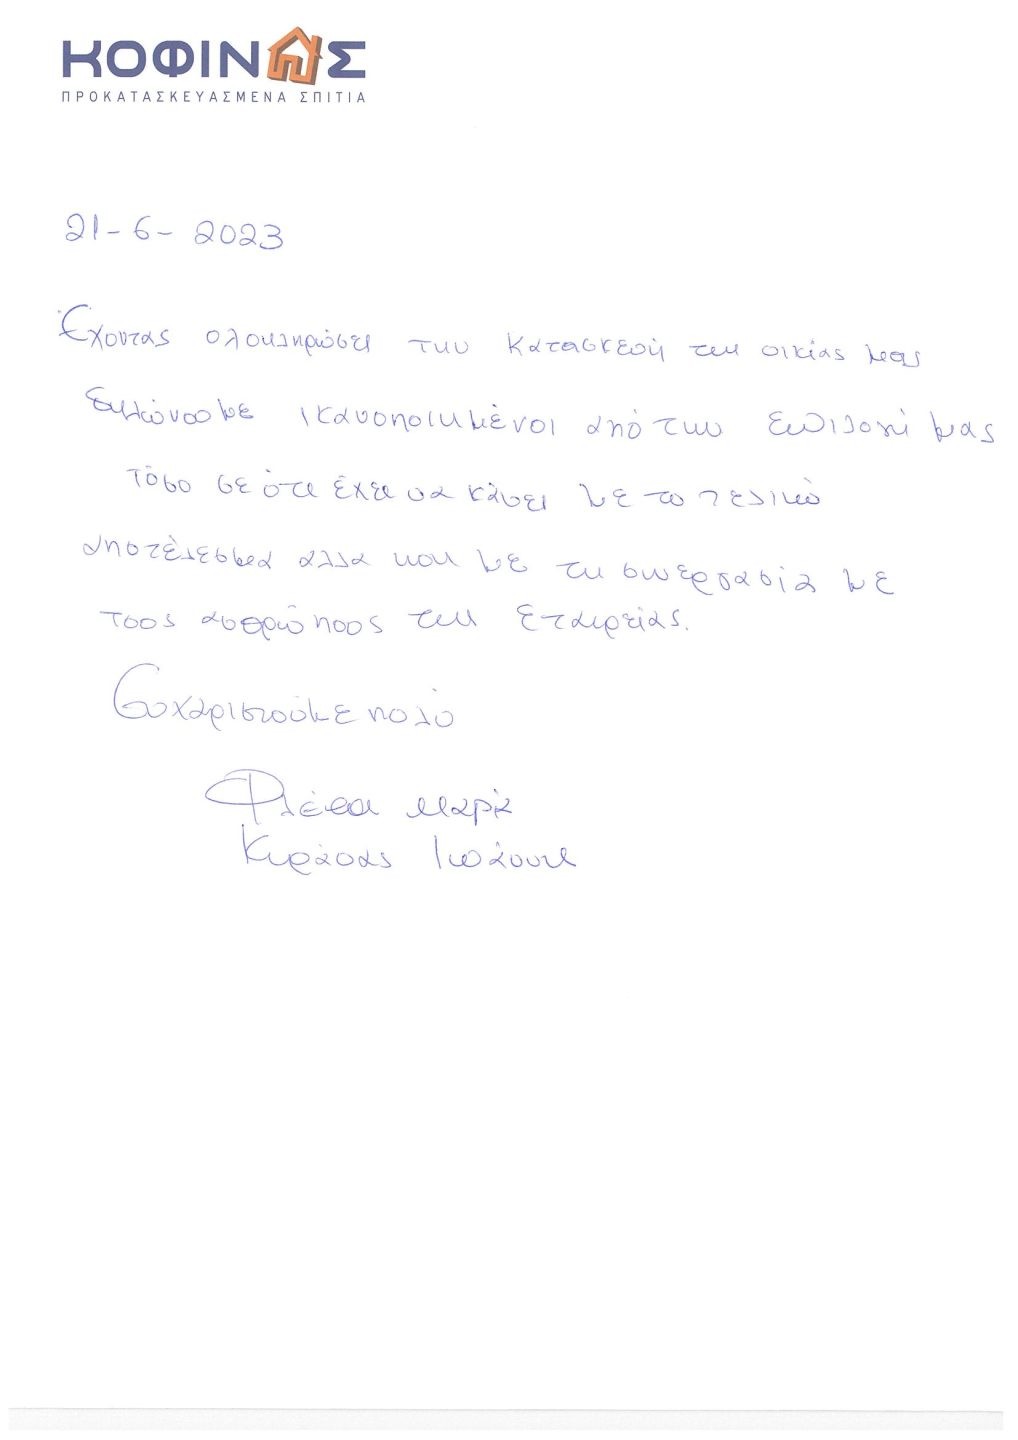 ΚΟΦΙΝΑΣ
ΠΡΟΚΑΤΑΣΚΕΥΑΣΜΕΝΑ ΣΠΙΤΙΑ
21-6-2023
Έχοντας ολοκληρώσει την κατασκευή της οικίας μας
δηλώνουμε ικανοποιημένοι από την επιλογή μας
τόσο σε ότι έχει να κάνει με το τελικό
αποτέλεσμα αλλα και με τη συνεργασία με
τους ανθρώπους της εταιρείας.
Ευχαριστούμε πολύ
Μαρία
Ιωάννης